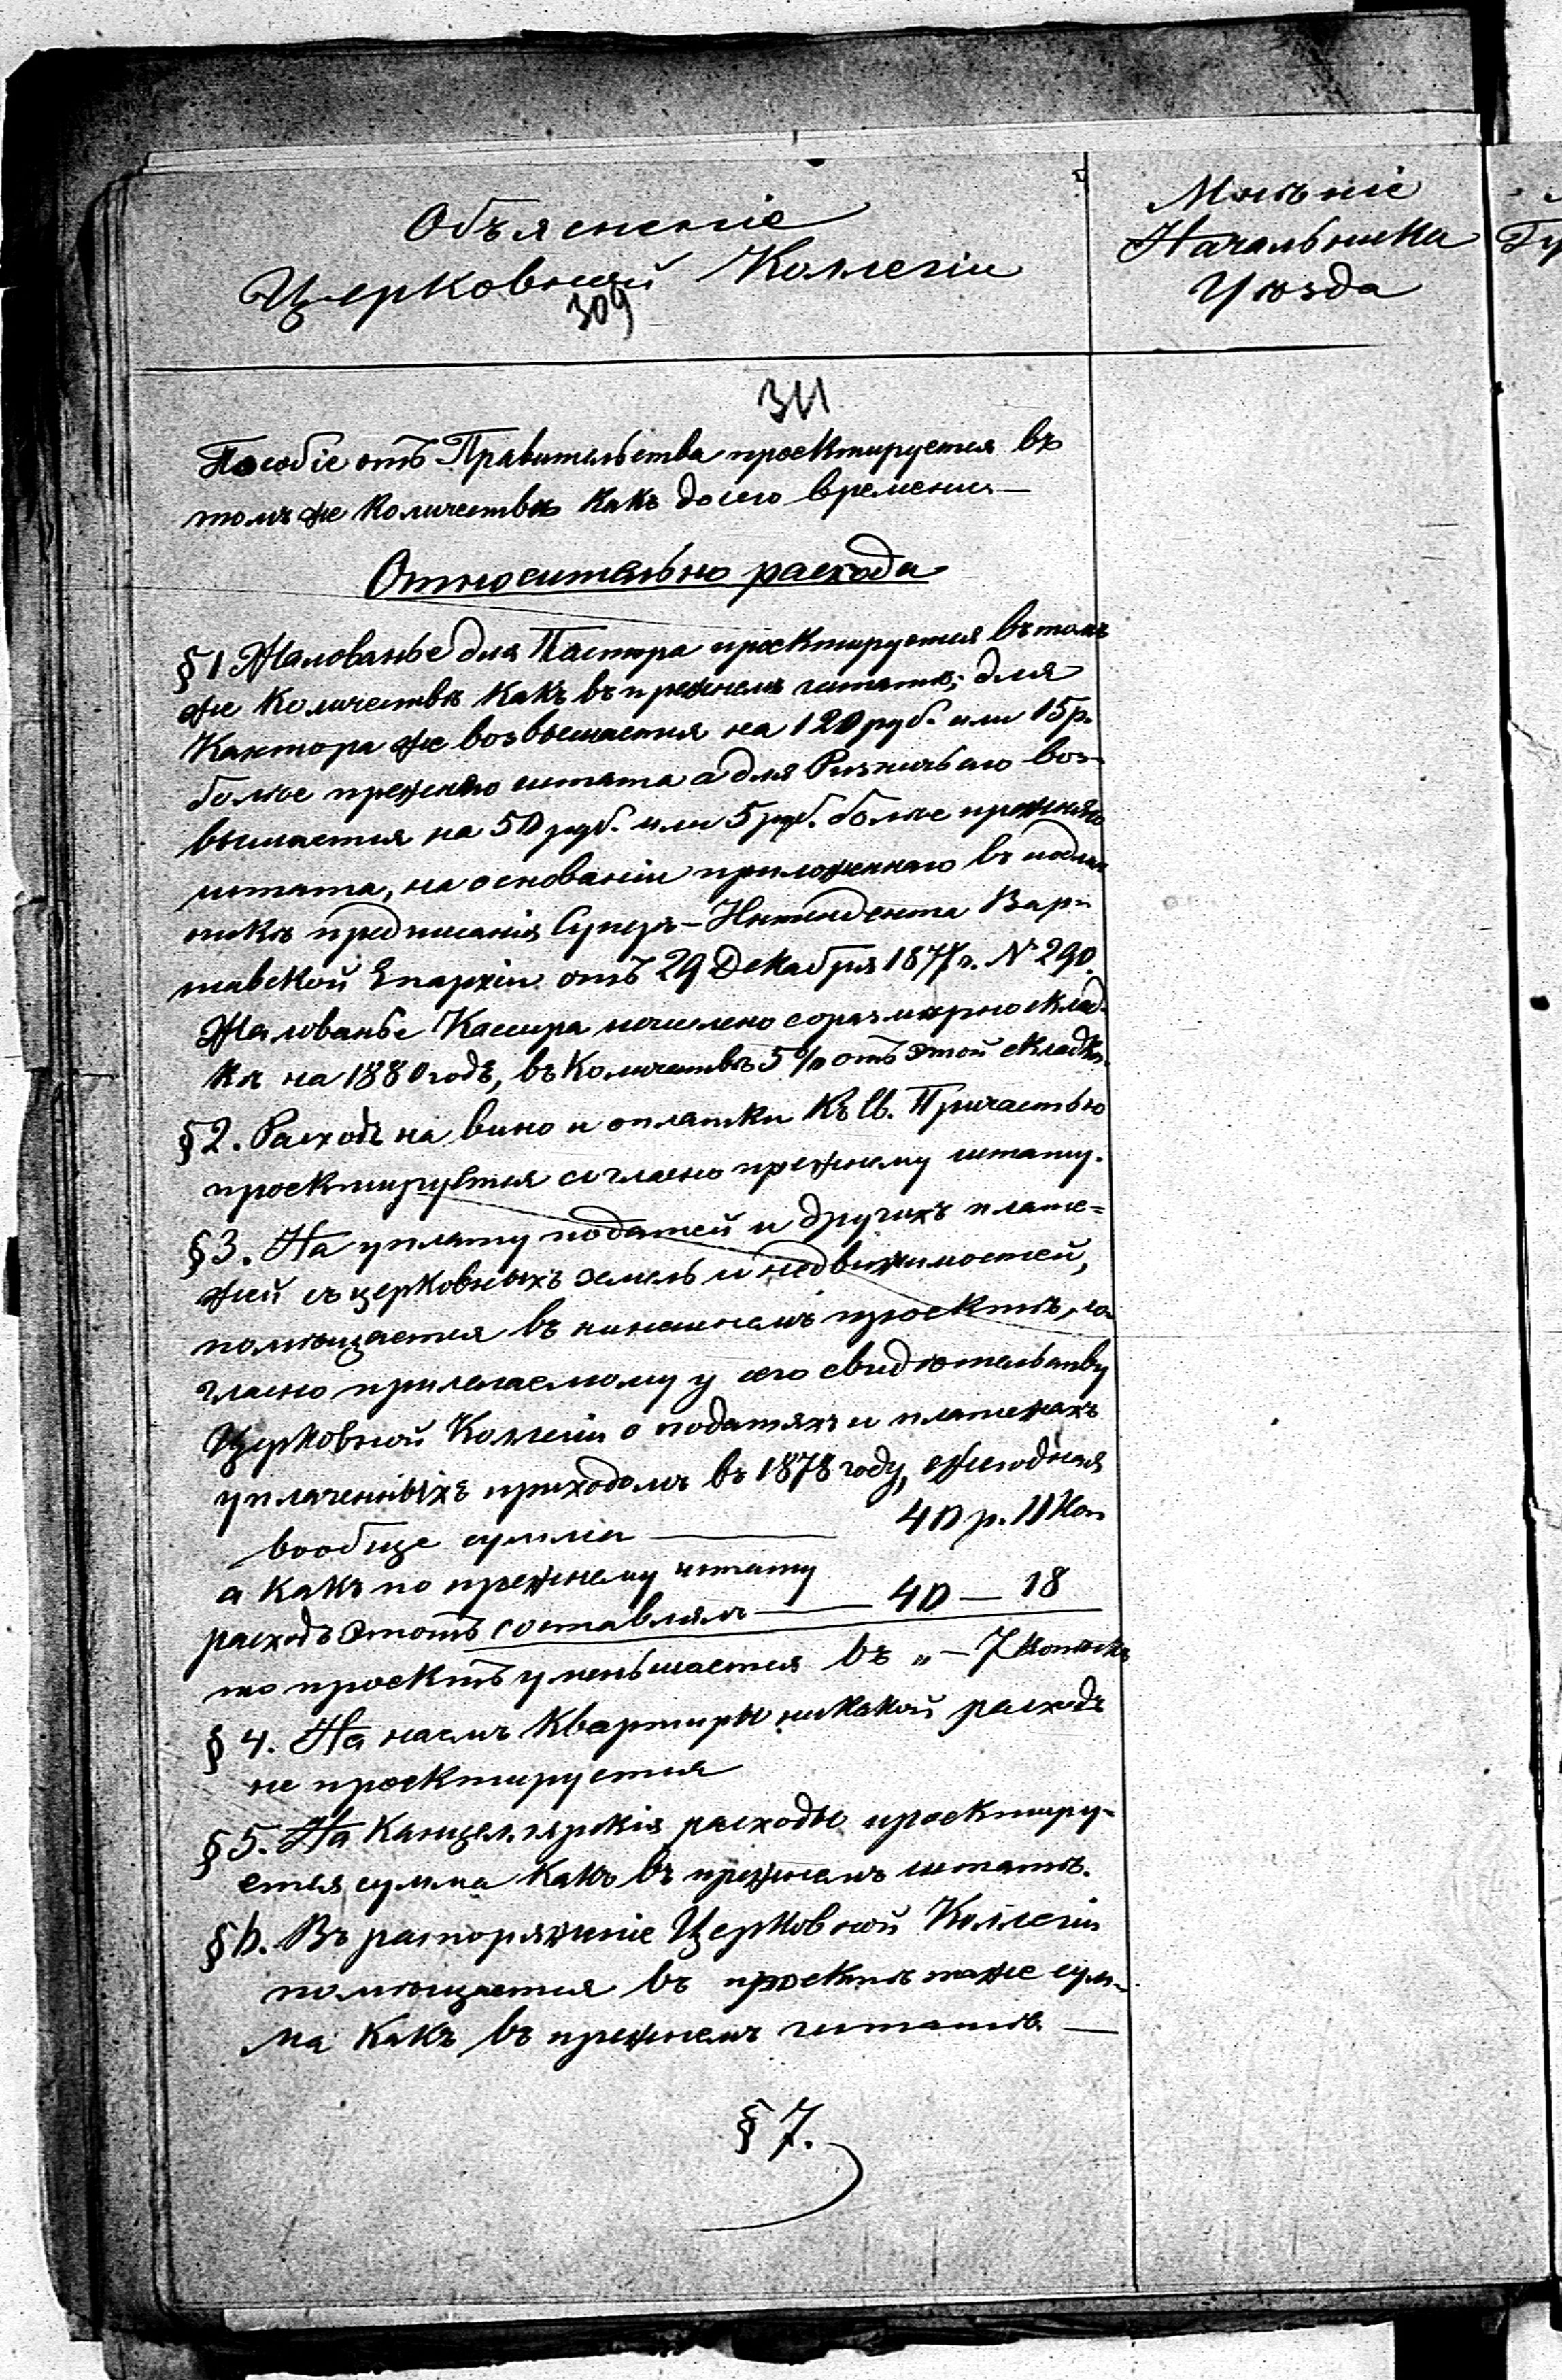 Объясненіе
Церковной Коллегіи
309
Мнѣніе
Начальника
Уѣзда
Гу
311
Пособіе отъ Правительства проектируется въ
томъ же количествѣ какъ досего времени —
Относительно расхода
§ 1 Жалованье для Пастора проектируется въ томъ
же количествѣ какъ въ прежнемъ штатѣ; для
Кантора же возвышается на 120 руб. или 15 р.
болѣе прежняго штата а для Ризничьего воз-
вышается на 50 руб. или 5 руб. болѣе прежняго
штата, на основаніи приложеннаго въ подлин
никѣ предписанія Супер-Интендента Вар-
шавской Епархіи отъ 29 Декабря 1877 г. № 290.
Жалованье Кассира исчислено соразмѣрно склад-
кѣ на 1880 годъ, въ количествѣ 5 % отъ этой складки.
§ 2. Расходъ на вино и оплатки къ Св. Причастью
проектируется согласно прежнему штату.
§ 3. На уплату податей и другихъ плате=
жей съ церковныхъ земель и недвижимостей,
помѣщается въ нинешнемъ проектѣ, со
гласно прилегаемому у сего свидѣтельству
Церковной Коллегіи о податяхъ и платежахъ
уплаченныхъ приходомъ въ 1878 году, ежегодная
вообще сумма — 40 р. 11 Коп
а какъ по прежнему штату
расходъ этотъ составлялъ — 40 — 18
то проектъ уменьшается въ „ — 7 копѣекъ
§ 4. На наемъ квартиры никакой расходъ
не проектируется
§ 5. На Канцеллярскія расходы проектиру-
ется сумма какъ въ прежнемъ штатѣ.
§ 6. Въ распоряженіе Церковной Коллегіи
помѣщается въ проектѣ таже сум-
ма какъ въ прежнемъ штатѣ —
§ 7.